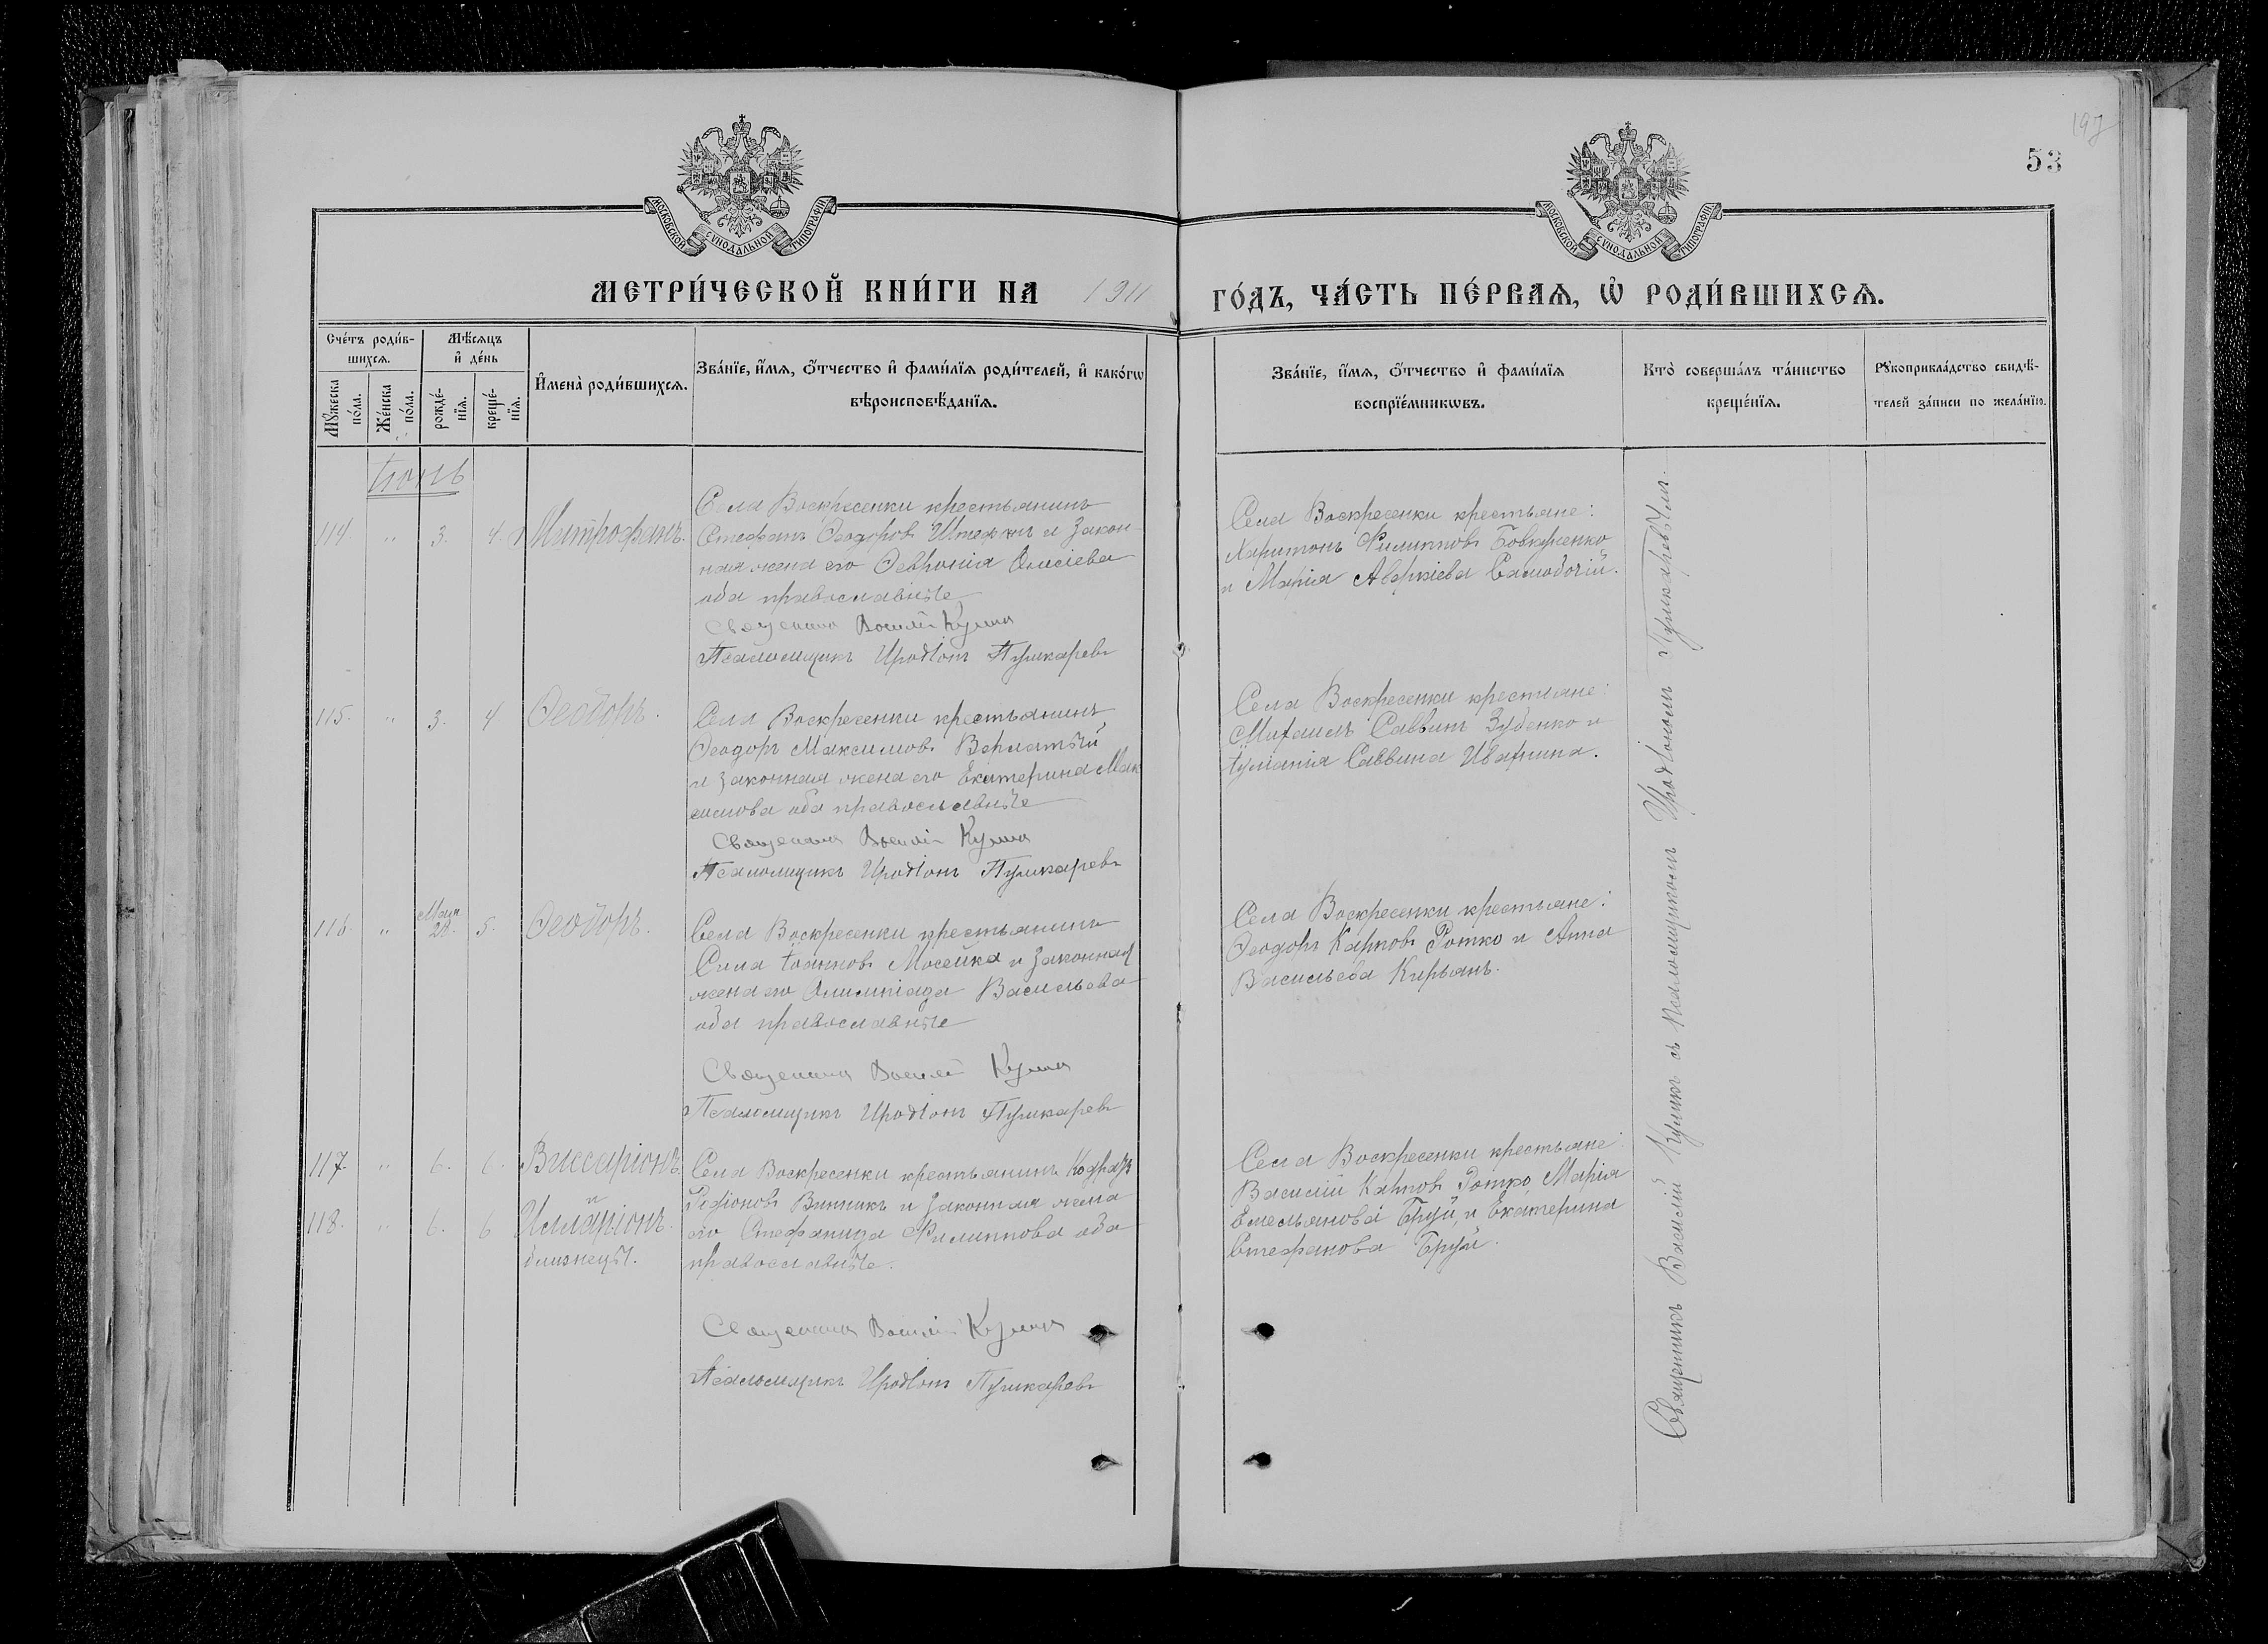 197
53
МОСКОВСКОЙ СУНОДАЛЬНОЙ ТИПОГРАФІИ
МОСКОВСКОЙ СУНОДАЛЬНОЙ ТИПОГРАФІИ
МЕТРИ́ЧЕСКОЙ КНИ́ГИ НА 1911 ГО́ДЪ, ЧА́СТЬ ПЕ́РВАѦ, Ѡ҆ РОДИ́ВШИХСѦ.
Сче́тъ роди́в-
шихсѧ.
Мꙋ́жеска
по́ла.
Же́нска
по́ла.
Мѣ́сѧцъ
и҆ де́нь
рожде́-
нїѧ.
креще́-
нїѧ.
И҆мена̀ роди́вшихсѧ.
Зва́нїе, и҆́мѧ, ѻ҆́тчество и҆ фами́лїѧ роди́телей, и҆ како́гѡ
вѣроисповѣ́данїѧ.
Зва́нїе, и҆́мѧ, ѻ҆́тчество и҆ фами́лїѧ
воспрїе́мникѡвъ.
Кто̀ соверша́лъ та́инство
креще́нїѧ.
Рꙋкоприкла́дство свидѣ́-
телей за́писи по жела́нїю.
Іюнь
114. " 3. 4. Митрофанъ.
Села Воскресенки крестьянинъ
Стефанъ Ѳеодоровъ и закон
ная жена его Февронія
оба православные
Священникъ Василій Кулик
Псаломщикъ Иродіонъ Пушкаревъ
Села Воскресенки крестьяне:
Харитонъ Филипповъ
и Марія Аверкіева
115. " 3. 4 Ѳеодоръ.
Села Воскресенки крестьянинъ
Ѳеодоръ Максимовъ
и законная жена его Екатерина Мак
симова оба православные
Священникъ Василій Кулик
Псаломщикъ Иродіонъ Пушкаревъ
Села Воскресенки крестьяне:
Михаилъ Саввинъ Зубенко и
Іуліанія Саввина
116. " Мая 28. 5. Ѳеодоръ.
Села Воскресенки крестьянинъ
Сила Іоанновъ Мосейка и законная
жена его Олимпіада Васильева
оба православные
Священникъ Василій Кулик
Псаломщикъ Иродіонъ Пушкаревъ
Села Воскресенки крестьяне:
Ѳеодоръ Карповъ Ротко и Анна
Васильева Кирьянъ.
117. " 6. 6. Виссаріонъ
и
118. " 6. 6 Илларіонъ.
близнецы.
Села Воскресенки крестьянинъ
Родіоновъ Винникъ и законная жена
его Стефанида Филиппова оба
православные.
Священникъ Василій Кулик
Псаломщикъ Иродіонъ Пушкаревъ
Села Воскресенки крестьяне:
Василій Карповъ Ротко, Марія
Емельянова Бруй, и Екатерина
Стефанова Бруй.
Священникъ Василій Куликъ съ псаломщикомъ Иродіономъ Пушкаревымъ.